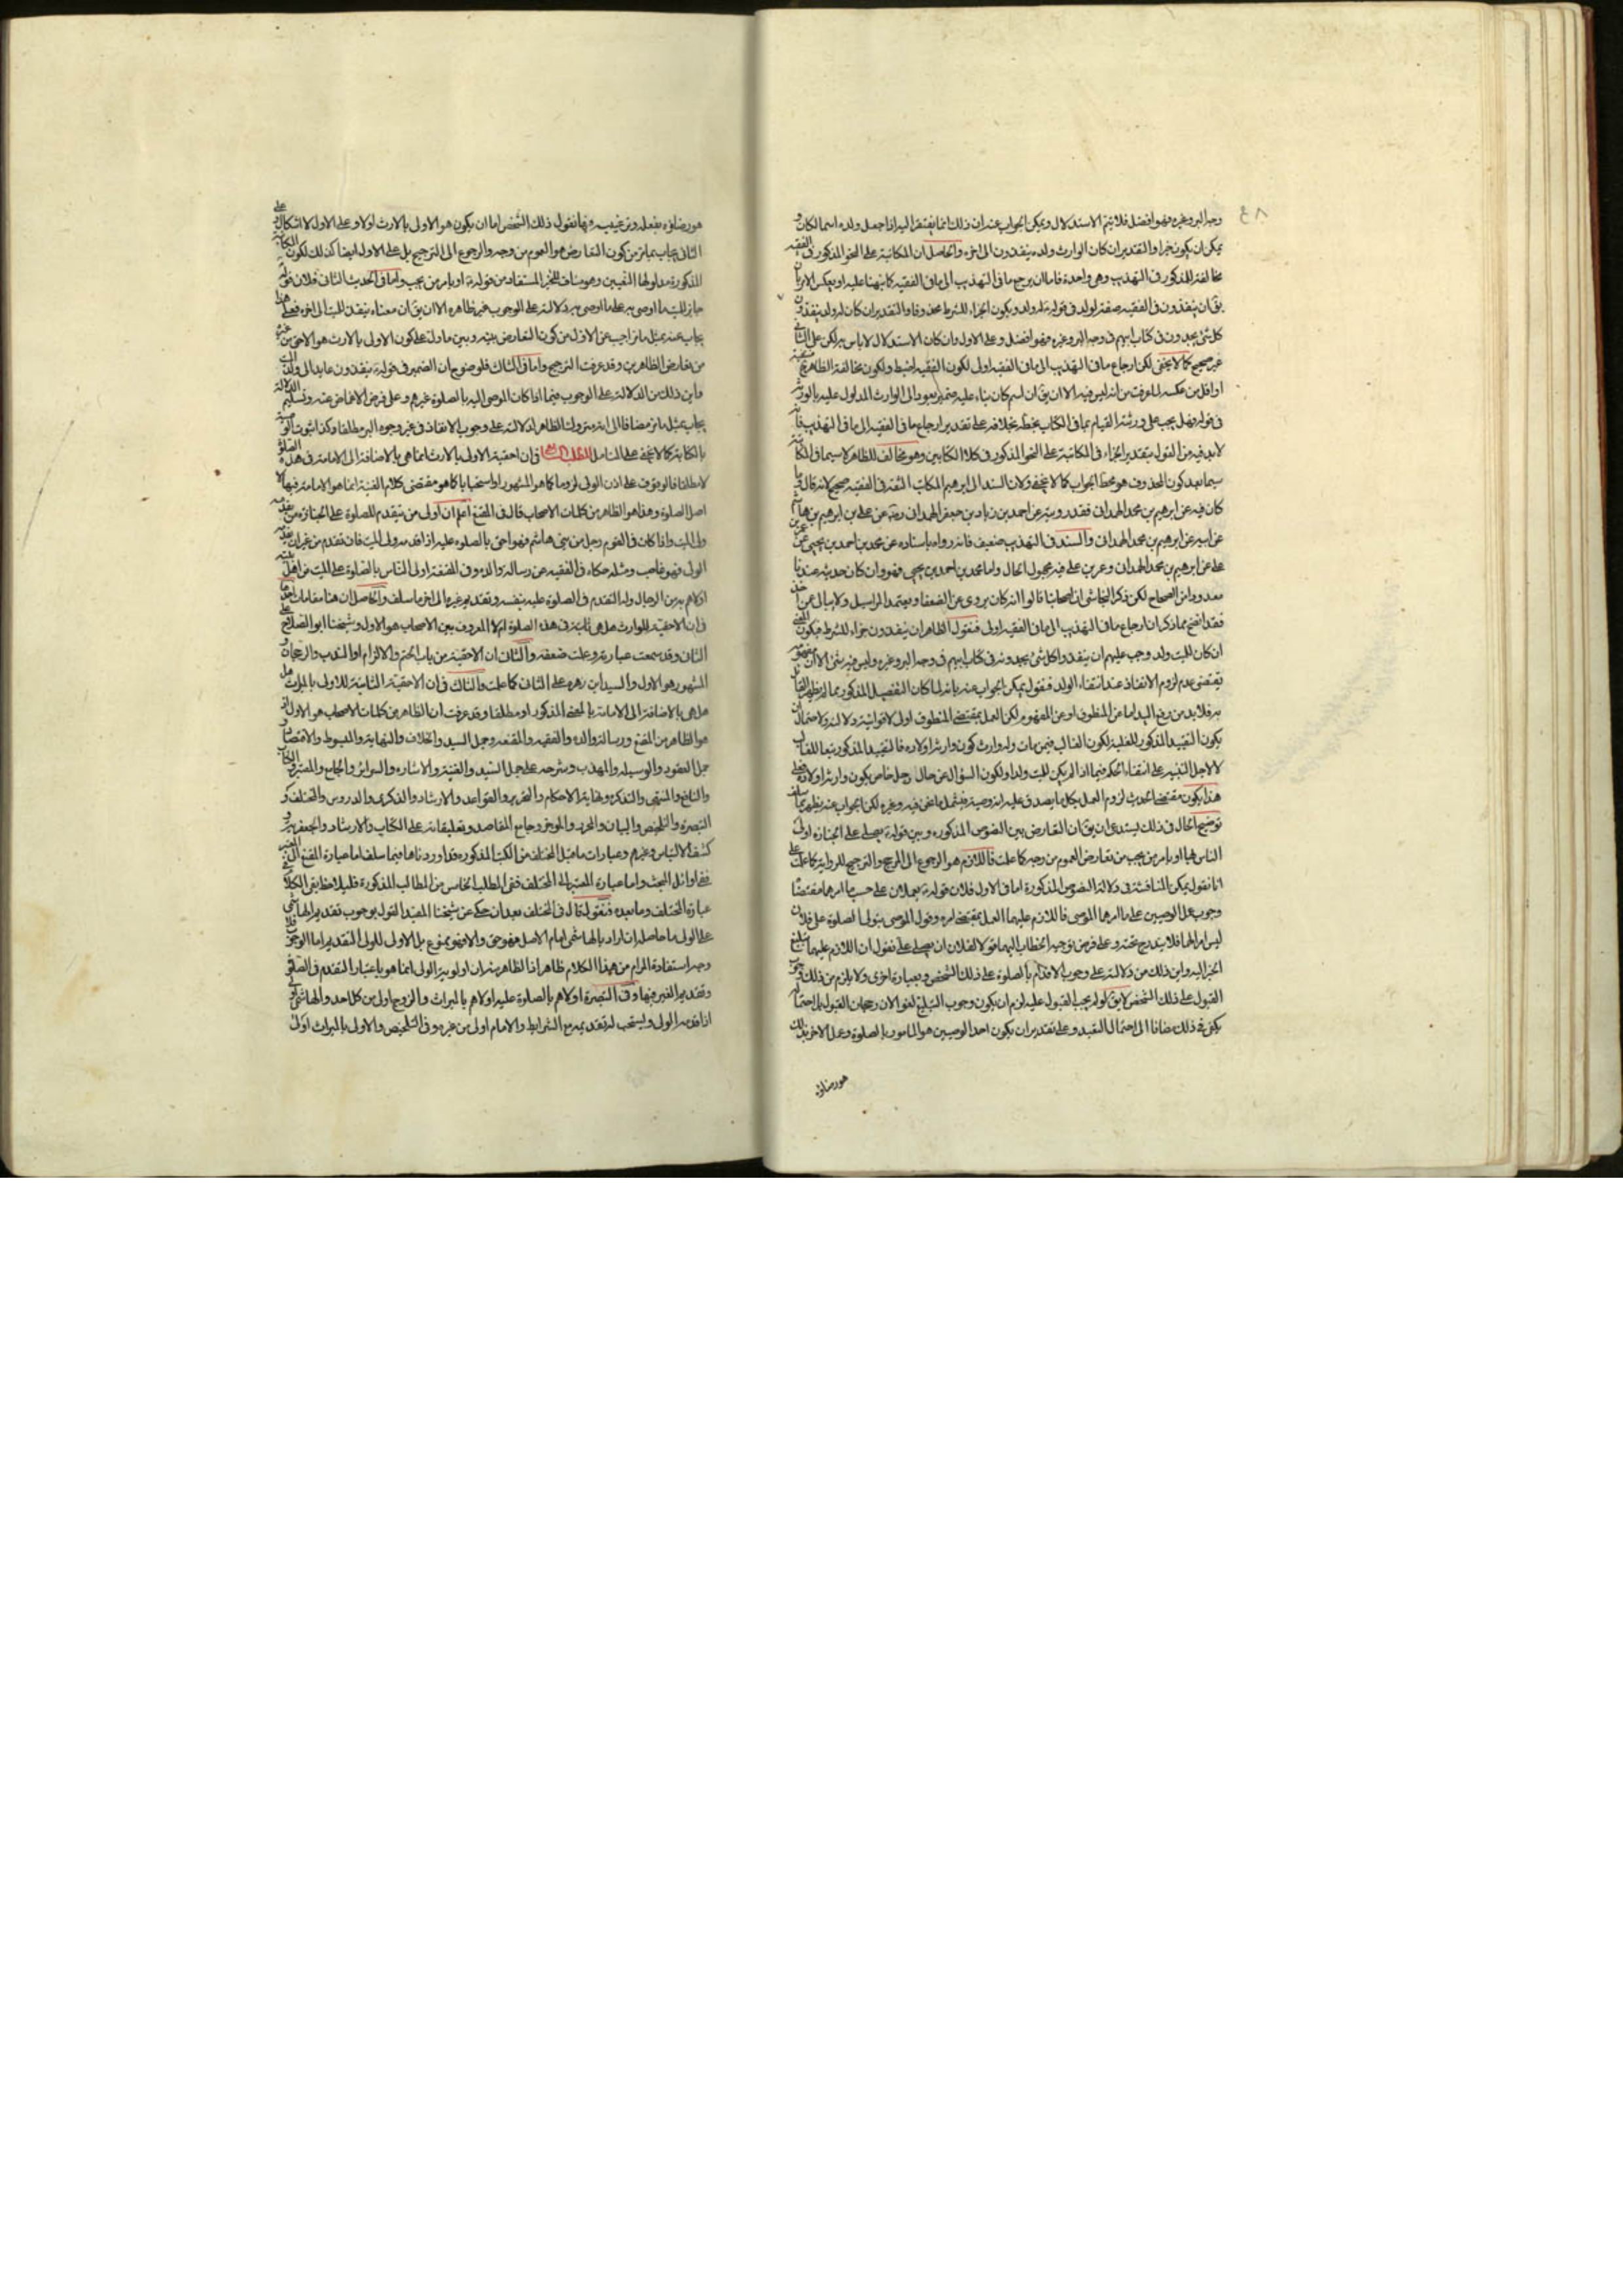 ٤٨
وجه البر وغيره فهو افضل فلا يتم الاستدلال ويمكن الجواب عنه ان ذلك انما يفتقر اليه اذا جعل ولده اسما لكان و
يمكن ان يكون خبرا والتقدير ان كان الوارث ولده ينفذون الى اخره والحاصل ان المكاتبة على النحو المذكور في الفقيه
مخالفة للمذكور في التهذيب وهي واحدة فاما ان يرجع ما في التهذيب الى ما في الفقيه كما نبهنا عليه او يعكس الامر بان
يق ان ينفذون في الفقيه صفة لولد في قوله وله ولد ويكون الجزاء للشرط محذوفا والتقدير ان كان له ولد ينفذون
كل شئ يجدون في كتاب ابيهم في وجه البر وغيره فهو افضل وعلى الاول وان كان الاستدلال لا باس به لكن على الثاني
غير صحيح كما لا يخفى لكن ارجاع ما في التهذيب الى ما في الفقيه اولى لكون الفقيه اضبط ولكون مخالفة الظاهر فيه
او اقل من عكسه لما عرفت من انه ليس فيه الا ان يق ان اسم كان بناء عليه ضمير يعود الى الوارث المدلول عليه بالورثة
في قوله فهل يجب على ورثته القيام بما في الكتاب بخطه بخلافه على تقدير ارجاع ما في الفقيه الى ما في التهذيب فانه
لابد فيه من القول بتقدير الجزاء في المكاتبة على النحو المذكور في كلا الكتابين وهو مخالف للظاهر لا سيما في المكاتبة
سيما بعد كون المحذوف هو محط الجواب كما لا يخفى ولان السند الى ابرهيم المكاتب الثقة في الفقيه صحيح لانه قال وما
كان فيه عن ابرهيم بن محمد الهمداني فقد رويته عن احمد بن زياد بن جعفر الهمداني رضه عن على بن ابرهيم بن هاشم
عن ابيه عن ابرهيم بن محمد الهمداني والسند في التهذيب ضعيف فانه رواه باسناده عن محمد بن احمد بن يحيى عن عمر بن
على عن ابرهيم بن محمد الهمداني وعمر بن على فيه مجهول الحال واما محمد بن احمد بن يحيى فهو وان كان حديثه عندنا
معدودا من الصحاح لكن ذكر النجاشى ان اصحابنا قالوا انه كان يروى عن الضعفا ويعتمد المراسيل ولا يبالى عمن اخذ
فقد اتضح مما ذكر ان ارجاع ما في التهذيب الى ما في الفقيه اولى فنقول الظاهر ان ينفذون جزاء للشرط فيكون المعنى
ان كان للميت ولد وجب عليهم ان ينفذوا كل شئ يجدونه في كتاب ابيهم في وجه البر وغيره وليس فيه شئ الا ان مفهومه
يقتضى عدم لزوم الانفاذ عند انتفاء الولد فنقول يمكن الجواب عنه بانه لما كان التفصيل المذكور مما لم يظهر القائل
به فلا بد من رفع اليد اما عن المنطوق او عن المفهوم لكن العمل بمقتضى المنطوق اولى لاقوائية دلالته ولاحتمال ان
يكون التقييد المذكور للغلبة لكون الغالب فيمن مات وله وارث كون وارثه اولاده فالتقييد المذكور تبعا للغالب
لا لاجل التنبيه على انتفاء الحكم فيما اذا لم يكن للميت ولد او لكون السؤال عن حال رجل خاص يكون وارثه اولاده فعلى
هذا يكون مقتضى الحديث لزوم العمل بكل ما يصدق عليه انه وصية فيشمل ما نحن فيه وغيره لكن الجواب عنه يظهر بما سلف
توضيح الحال في ذلك يستدعى ان يق ان التعارض بين النصوص المذكوره وبين قوله يصلى على الجنازة اولى
الناس بها او يامر من يحب من تعارض العموم من وجه كما علمت فاللازم هو الرجوع الى المرجح والترجيح للرواية كما علمت على
انا نقول يمكن المناقشة في دلالة النصوص المذكورة اما في الاول فلان قوله يعملان على حسب ما امرهما مقتضاه
وجوب عمل الوصيين على ما امرهما الموصى فاللازم عليهما العمل بمقتضى امره وقول الموصى يتولى الصلوة على فلان
ليس امرا لهما فلا يندرج تحته وعلى فرض توجه الخطاب اليهما قولا لفلان ان يصلى على نقول ان اللازم عليهما تبليغ
الخبر اليه واين ذلك من دلالته على وجوب الاقدام بالصلوة على ذلك الشخص وبعبارة اخرى ولا يلزم من ذلك وجوب
القبول على ذلك الشخص لا يق لو لم يجب القبول عليه لزم ان يكون وجوب التبليغ لغوا لان رجحان القبول بل احتماله
يكفى في ذلك مضافا الى احتمال التقييد وعلى تقدير ان يكون احد الوصيين هو المامور بالصلوة وعمل الاخر بذلك
هو رضاؤه
هو رضاؤه بفعله وترغيبه وبها نقول ذلك الشخص اما ان يكون هو الاولى بالارث اولا وعلى الاول لا اشكال وعلى
الثاني يجاب بما مر من كون التعارض هو العموم من وجه والرجوع الى الترجيح بل على الاول ايضا كذلك لكون المكاتبة
المذكورة مدلولها التعيين وهو مناف للتخير المستفاد من قوله او يامر من يحب واما في الحديث الثانى فلان قوله
جايز للميت ما اوصى به على ما اوصى به دلالته على الوجوب غير ظاهره الا ان يق ان معناه ينفذ للميت الى اخره فعلى هذا
يجاب عنه بمثل ما اجيب عن الاول من كون التعارض بينه وبين ما دل على كون الاولى بالارث هو الاحق من غيره
من تعارض الظاهرين وقد عرفت الترجيح واما في الثالث فلوضوح ان الضمير في قوله ينفذون عايد الى ولد الميت
واين ذلك من الدلالة على الوجوب فيما اذا كان الموصى اليه بالصلوة غيرهم وعلى فرض الاغماض عنه وتسليم الدلالة
يجاب بمثل ما مر مضافا الى امر مر وان الظاهر الدلالة على وجوب الانفاذ في غير وجوه البر مطلقا وكذا ثبوت الوصية
بالكتابة كما لا يخفى على المتامل المطلب الرابع في ان احقية الاولى بالارث انما هي بالاضافة الى الامامة في هذه الصلوة
لا مطلقا فالوقوف على اذن الولى لزوما كما هو المشهور او استحبابا كما هو مقتضى كلام الغنية انما هو الامامة فيها لا
اصل الصلوة وهذا هو الظاهر من كلمات الاصحاب قال في المقنع اعلم ان اولى من يتقدم للصلوة على الجنازه من يقدمه
ولى الميت واذا كان في القوم رجل من بنى هاشم فهو احق بالصلوة عليه اذا قدمه ولى الميت فان تقدم من غير ان يقدمه
الولى فهو غاصب ومثله حكاه في الفقيه عن رسالة والده وفي المقنعة اولى الناس بالصلوة على الميت من اهل بيته
اولاهم به من الرجال وله التقدم في الصلوة عليه بنفسه وتقديم غيره الى اخر ما سلف والحاصل ان هنا مقامات احدها
في ان الاحقية للوارث هل هي ثابتة في هذه الصلوة ام لا المعروف بين الاصحاب هو الاول وشيخنا ابو الصلاح على
الثاني وقد سمعت عبارته وعلمت ضعفه والثانى ان الاحقية من باب الحتم والالزام او الندب والرجحان و
المشهور هو الاول والسيد ابن زهره على الثانى كما علمت والثالث في ان الاحقية الثابتة للاولى بالميراث هل
هل هي بالاضافة الى الامامة بالمعنى المذكور او مطلقا وقد عرفت ان الظاهر من كلمات الاصحاب هو الاول اذ
هو الظاهر من المقنع ورسالة والده والفقيه والمقنعه وجمل السيد والخلاف والنهاية والمبسوط والاقتصاد و
جمل العقود والوسيله والمهذب وشرحه على جمل السيد والغنية والاشاره والسرائر والجامع والمعتبر
والنافع والمنتهى والتذكره ونهاية الاحكام والتحرير والقواعد والارشاد والذكرى والدروس والمختلف و
التبصرة والتلخيص والبيان والمحرر والموجز وجامع المقاصد وتعليقاته على الكتاب والارشاد والجعفرية و
كشف الالتباس وغيرهم وعبارات ما قبل المختلف من الكتب المذكوره قد اوردناها فيما سلف اما عبارة المقنع
ففى اوائل البحث واما عبارة المعتبر الى المختلف ففى المطلب الخامس من المطالب المذكورة فليلاحظ بقى الكلام في
عبارة المختلف وما بعده فنقول قال في المختلف بعد ان حكى عن شيخنا المفيد القول بوجوب تقديم الهاشمى
على الولى ما حاصله ان اراد بالهاشمى امام الاصل فهو حق والا فهو ممنوع بل الاولى للولى التقديم اما الوجوب فلا
وجه استفادة المرام من هذا الكلام ظاهر اذ الظاهر منه ان اولوية الولى انما هو باعتبار التقدم في الصلوة
وتقديم الغير فيها وفي التبصرة اولاهم بالصلوة عليه اولاهم بالميراث والزوج اولى من كل احد والهاشمى اولى
اذا قدمه الولى ويستحب له تقديمه مع الشرايط والامام اولى من غيره وفي التلخيص والاولى بالميراث اولى